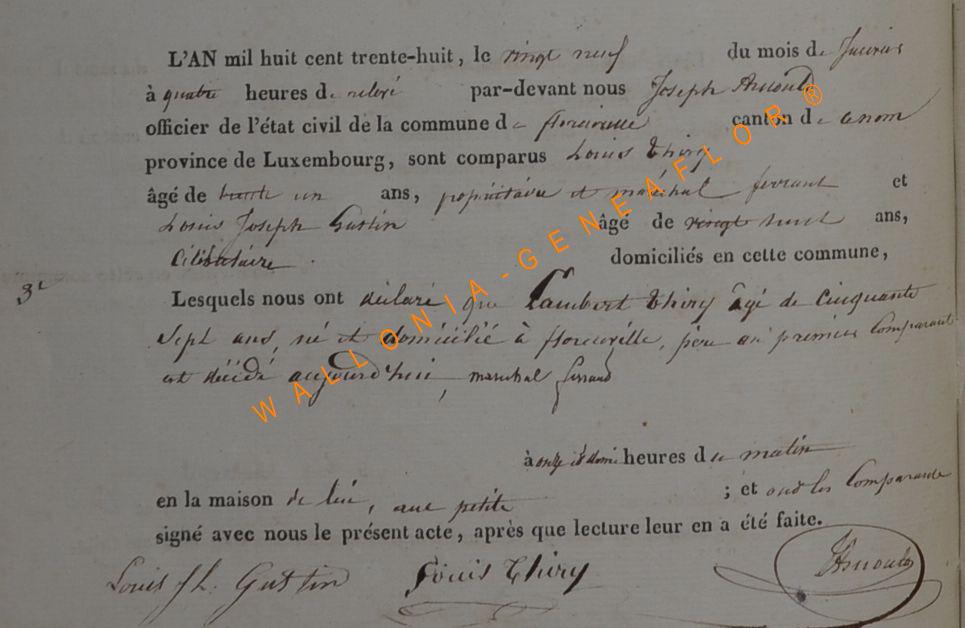 L'AN mil huit cent trente-huit, le vingt neuf du mois de Janvier
à quatre heures de relevé par-devant nous Joseph Arnould
officier de l'état civil de la commune de florenville canton d
province de Luxembourg, sont comparus Louis Thiry
âgé de trente un ans, propriétaire et maréchal ferrant et
Louis Joseph Gustin âgé de vingt ans,
Célibataire. domiciliés en cette commune,
3e
Lesquels nous ont déclaré que Lambert Thiry âgé de Cinquante
Sept ans, né et domicilié à florenville, père au premier Comparant
est décédé aujourd'hui, maréchal ferrand
à onze et demi heures du matin
en la maison de lui, rue petite ; et ont les Comparants
signé avec nous le présent acte, après que lecture leur en a été faite.
Louis JL. Gustin Louis Thiry JArnould
WALLONIA-GENEAFLOR®